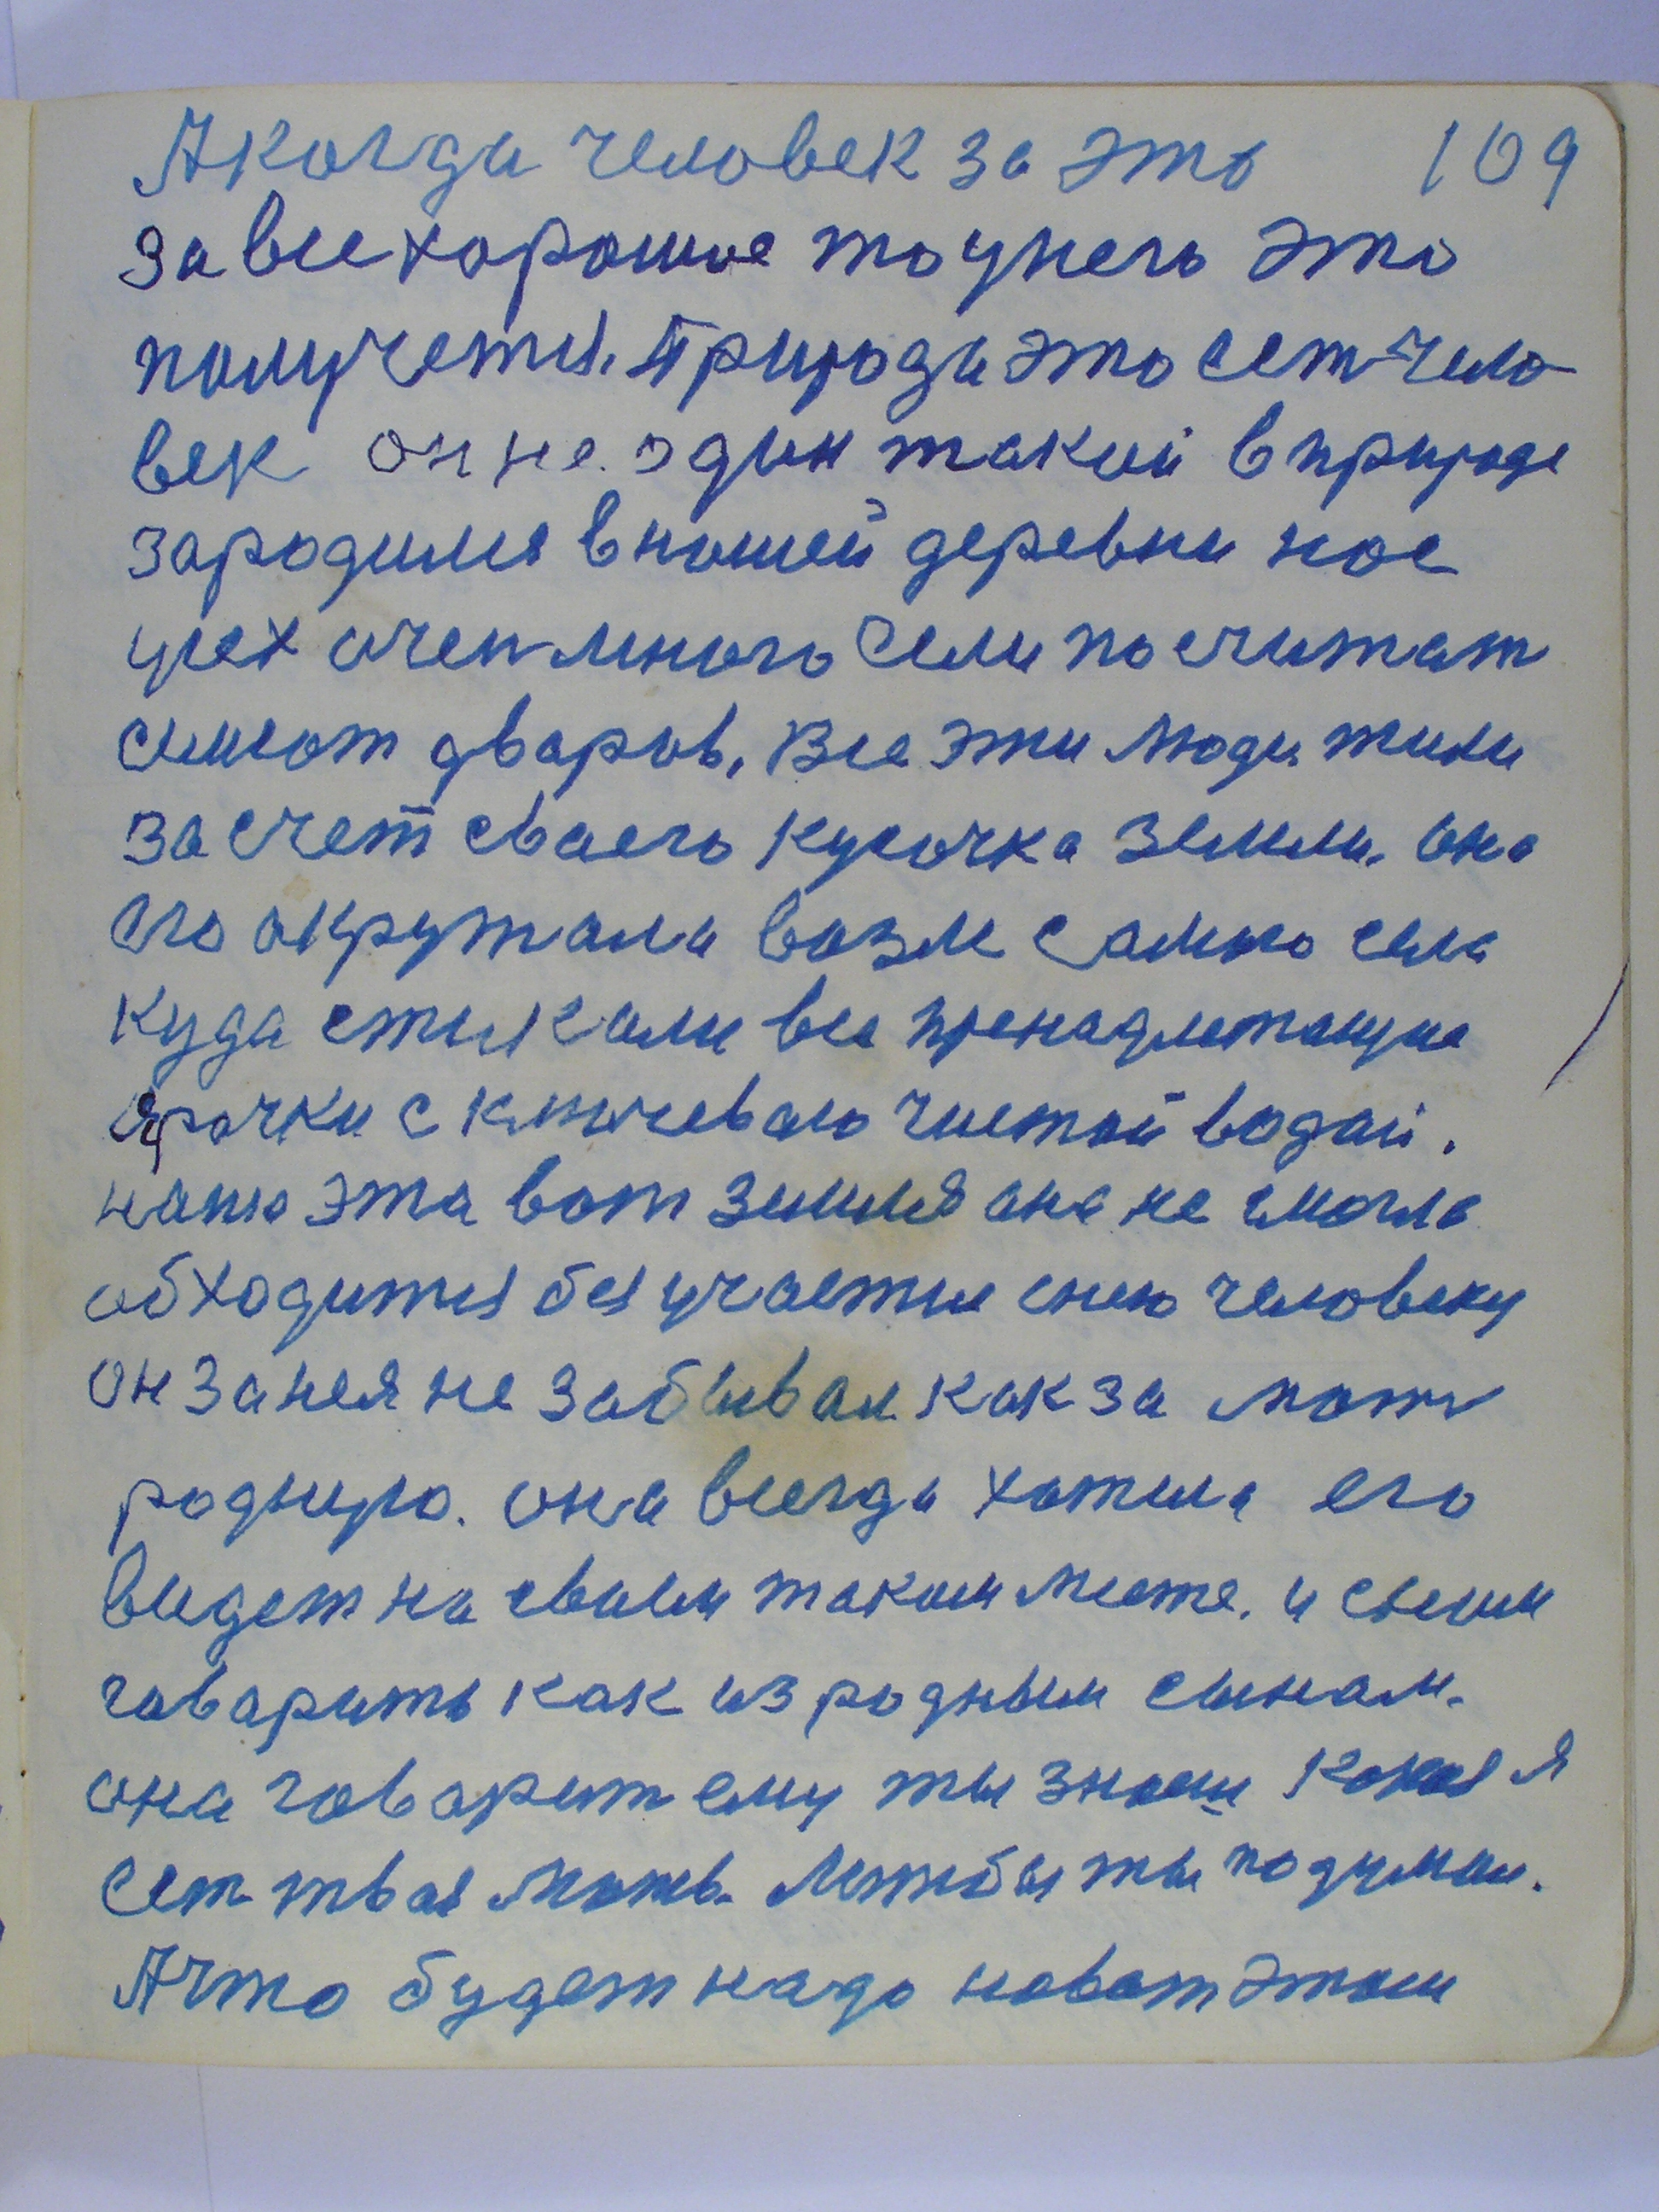 А когда человек за это 109
за все хорошое то у него это
получется. Природа это ест чело-
век он не один такой в природе
зародился в нашей деревни нос
у нех очен много если посчитат
семсот дваров. Все эти люди жили
за счет сваего кусочка земли. она
его окружала возле самого села
куда стыкали все пренадлежащие
ярочки с ключеваю чистой водай.
на эта вот земля она не могла
обходится без участия снею человеку
он за нея не забывал как за мать
родную. она всегда хотела его
видет на сваем таком месте. и с ним
гаварить как из родным сынам.
она гаварит ему ты знаеш какая я
ест твая мать. Лежбы ты подумал.
А что будет надо на вот этом